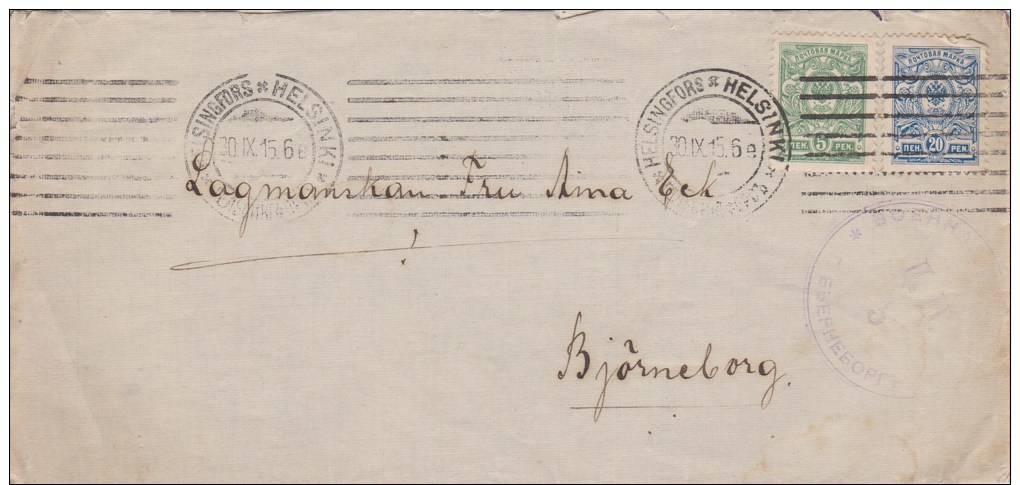 ПОЧТОВАЯ МАРКА
5
ПЕН. PEN.
ПОЧТОВАЯ МАРКА
20
ПЕН. PEN.
HELSINGFORS * HELSINKI *
30.IX.15.6e
HELSINGFORS * HELSINKI *
30.IX.15.6e
Lagmanskan Fru Aina Eck
!
Björneborg.
* ВОЕНН
БЬЕРНЕБОРГ